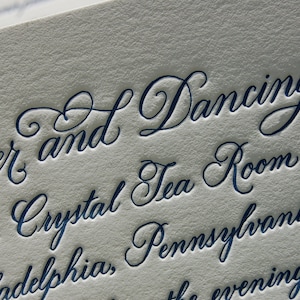 er and Dancing
Crystal Tea Room
adelphia, Pennsylvan
the evening